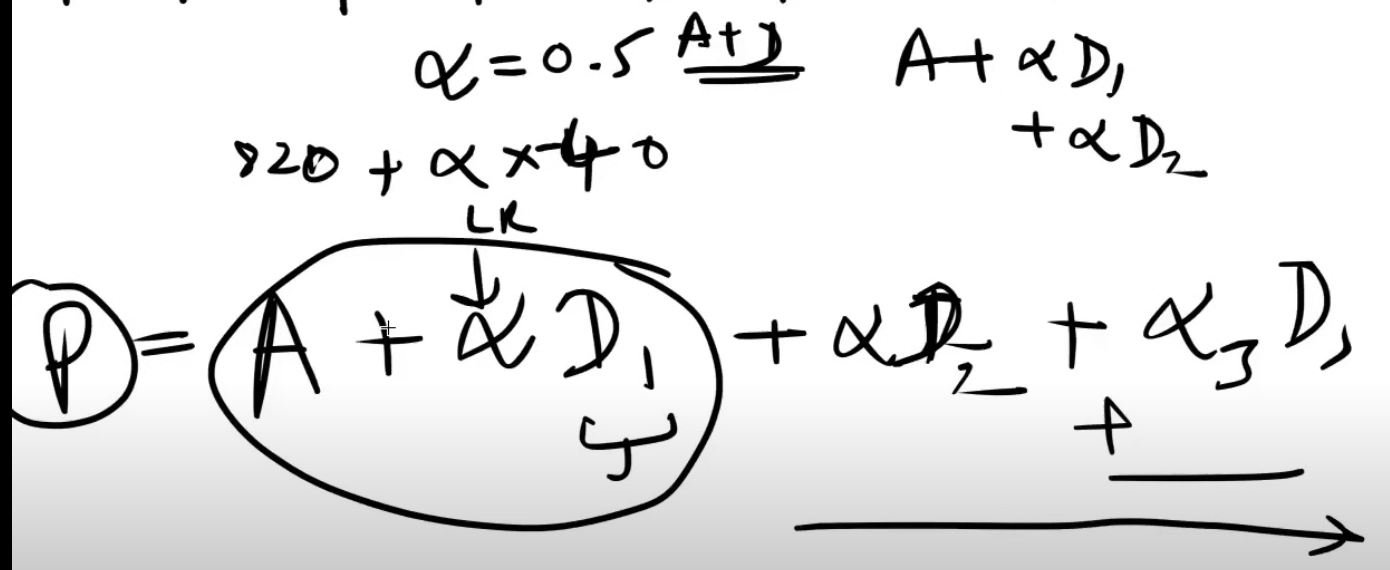 α = 0.5 A+D A + αD₁
+ αD₂
820 + α × -40
LR
P = A + αD₁ + αD₂ + α₃D,
+